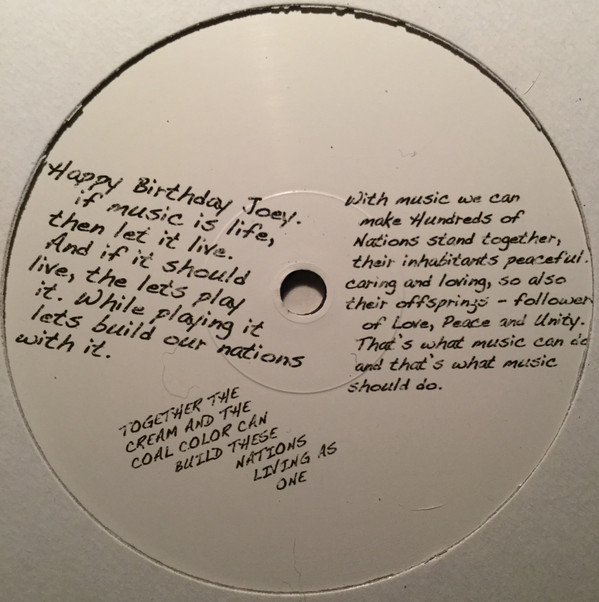 Happy Birthday Joey.
if music is life,
then let it live.
And if it should
live, the lets play
it. While playing it
lets build our nations
with it.
With music we can
make Hundreds of
Nations stand together,
their inhabitants peaceful.
caring and loving, so also
their offsprings - follower
of Love, Peace and Unity.
That's what music can do
and that's what music
should do.
TOGETHER THE
CREAM AND THE
COAL COLOR CAN
BUILD THESE
NATIONS
LIVING AS
ONE